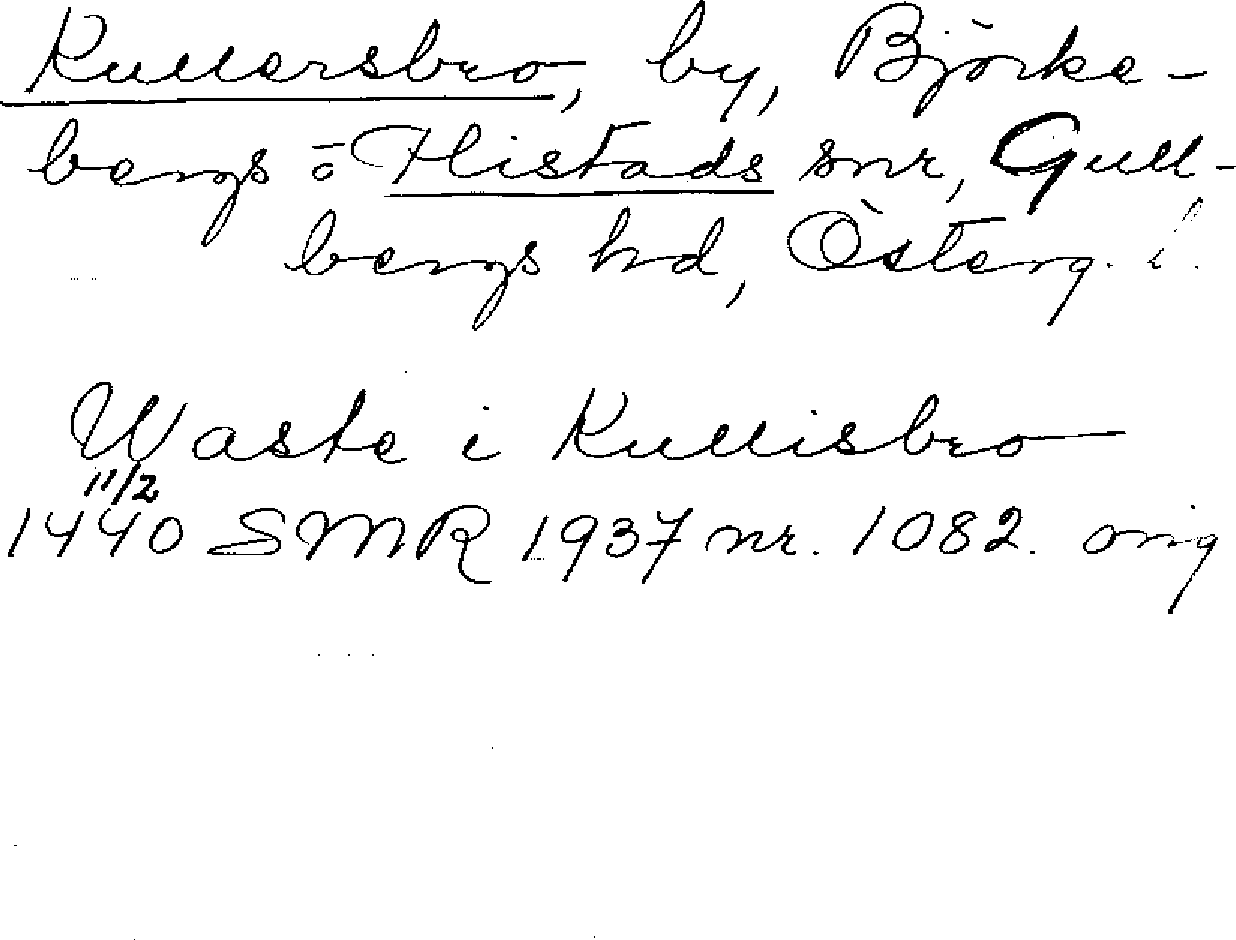 Kullersbro, by, Björke-
bergs o Flistads snr, Gull-
bergs hd, Österg. l.
Waste i Kullisbro
11/2
1440 SMR 1937 nr. 1082. orig